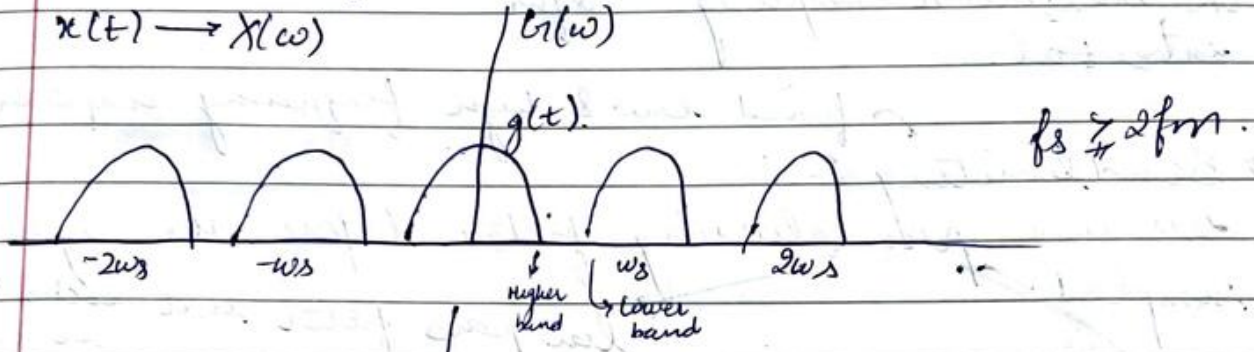 x(t) → X(ω)
G(ω)
g(t).
fs ≥ 2fm.
-2ωs -ωs ωs 2ωs ..
Higher band
Lower band